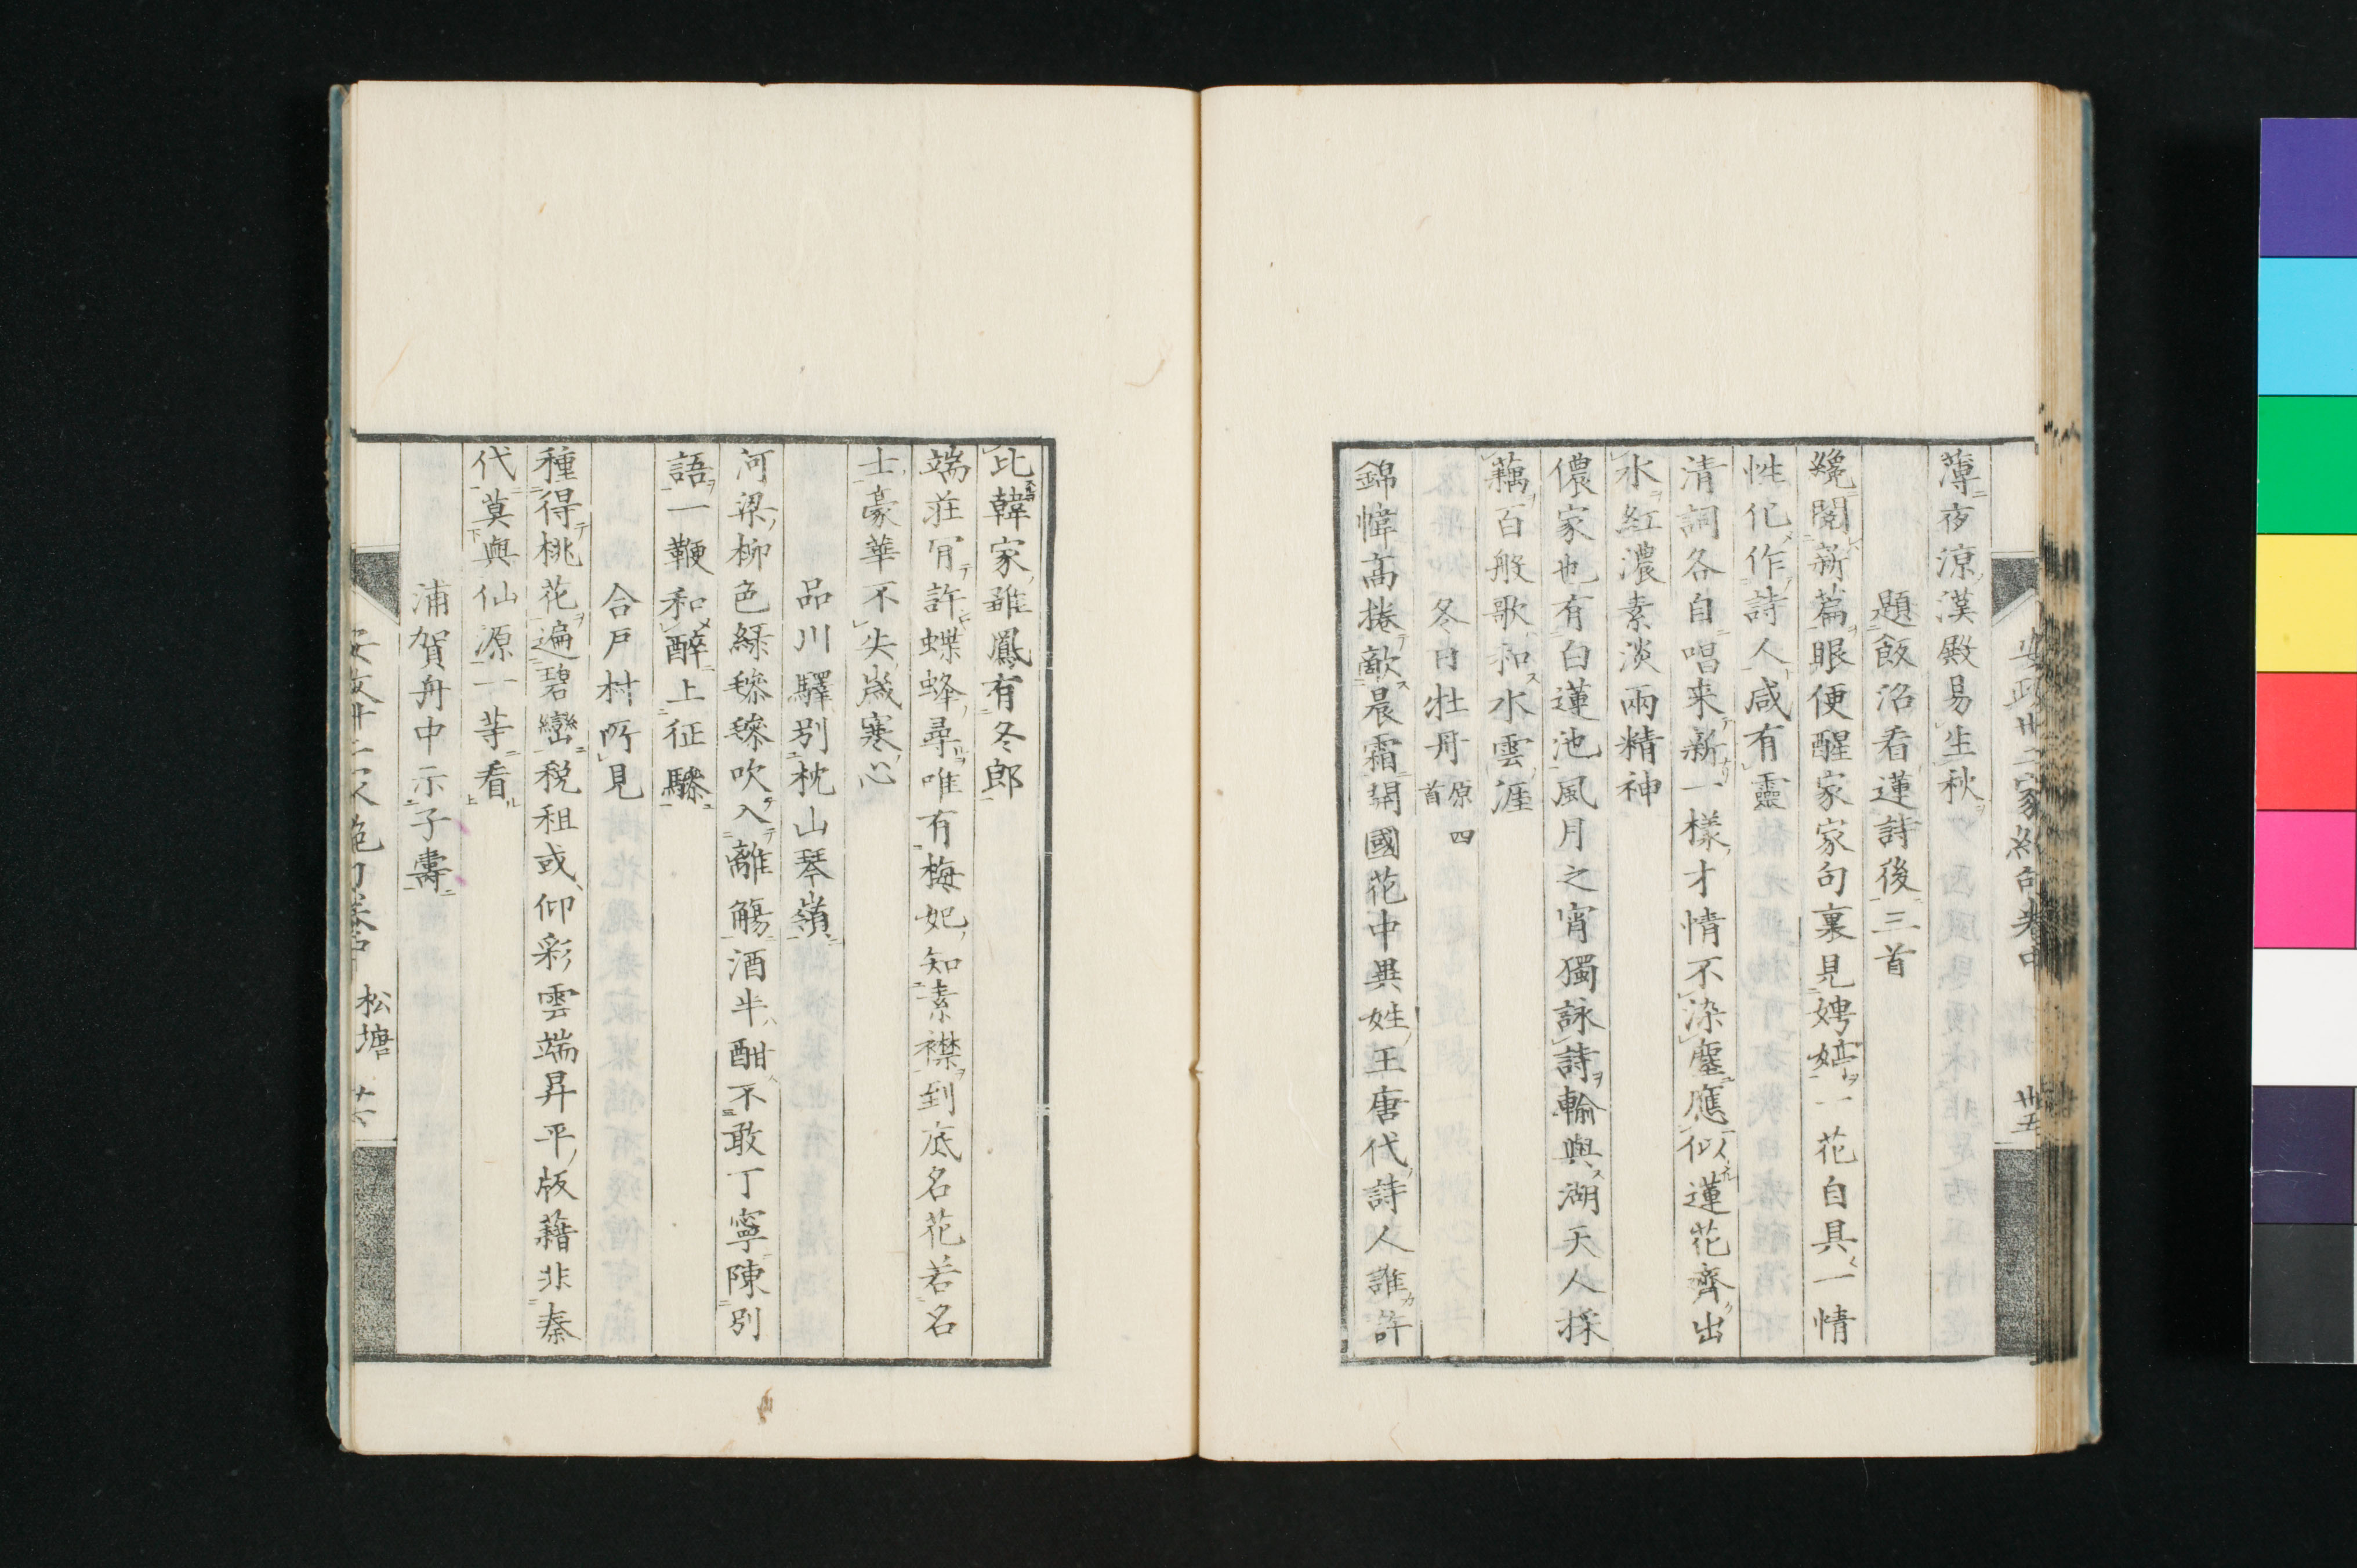 安政卅二家絶句卷中 卅五
薄夜涼漢殿易生秋
題飯沼看蓮詩後三首
纔閱新篇眼便醒家家句裏見娉婷一花自具一情
性化作詩人咸有靈
清詞各自唱来新一樣才情不染塵應似蓮花齊出
水紅濃素淡兩精神
儂家也有白蓮池風月之宵獨詠詩輸與湖天人採
藕百般歌和水雲涯
冬日牡丹原四首
錦幃高捲敵晨霜開國花中異姓王唐代詩人誰許
比韓家雖鳳有冬郎
端莊肎許蝶蜂尋唯有梅妃知素襟到底名花若名
士豪華不失歲寒心
品川驛別枕山琴嶺
河梁柳色綠毿毿吹入離觴酒半酣不敢丁寧陳別
語一鞭和醉上征驂
合戸村所見
種得桃花遍碧巒稅租或仰彩雲端昇平版籍非秦
代莫與仙源一等看
浦賀舟中示子壽
安政卅二家絶句卷中 松塘